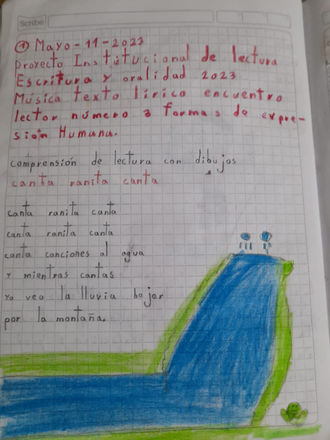 Scribe
1
① Mayo-11-2023
Proyecto Institucional de lectura
Escritura y oralidad 2023
Música texto lírico encuentro
lector número 3 formas de expre-
sión Humana.
comprensión de lectura con dibujos
canta ranita canta
canta ranita canta
canta ranita canta
canta canciones al agua
y mientras cantas
Yo veo la lluvia bajar
por la montaña.